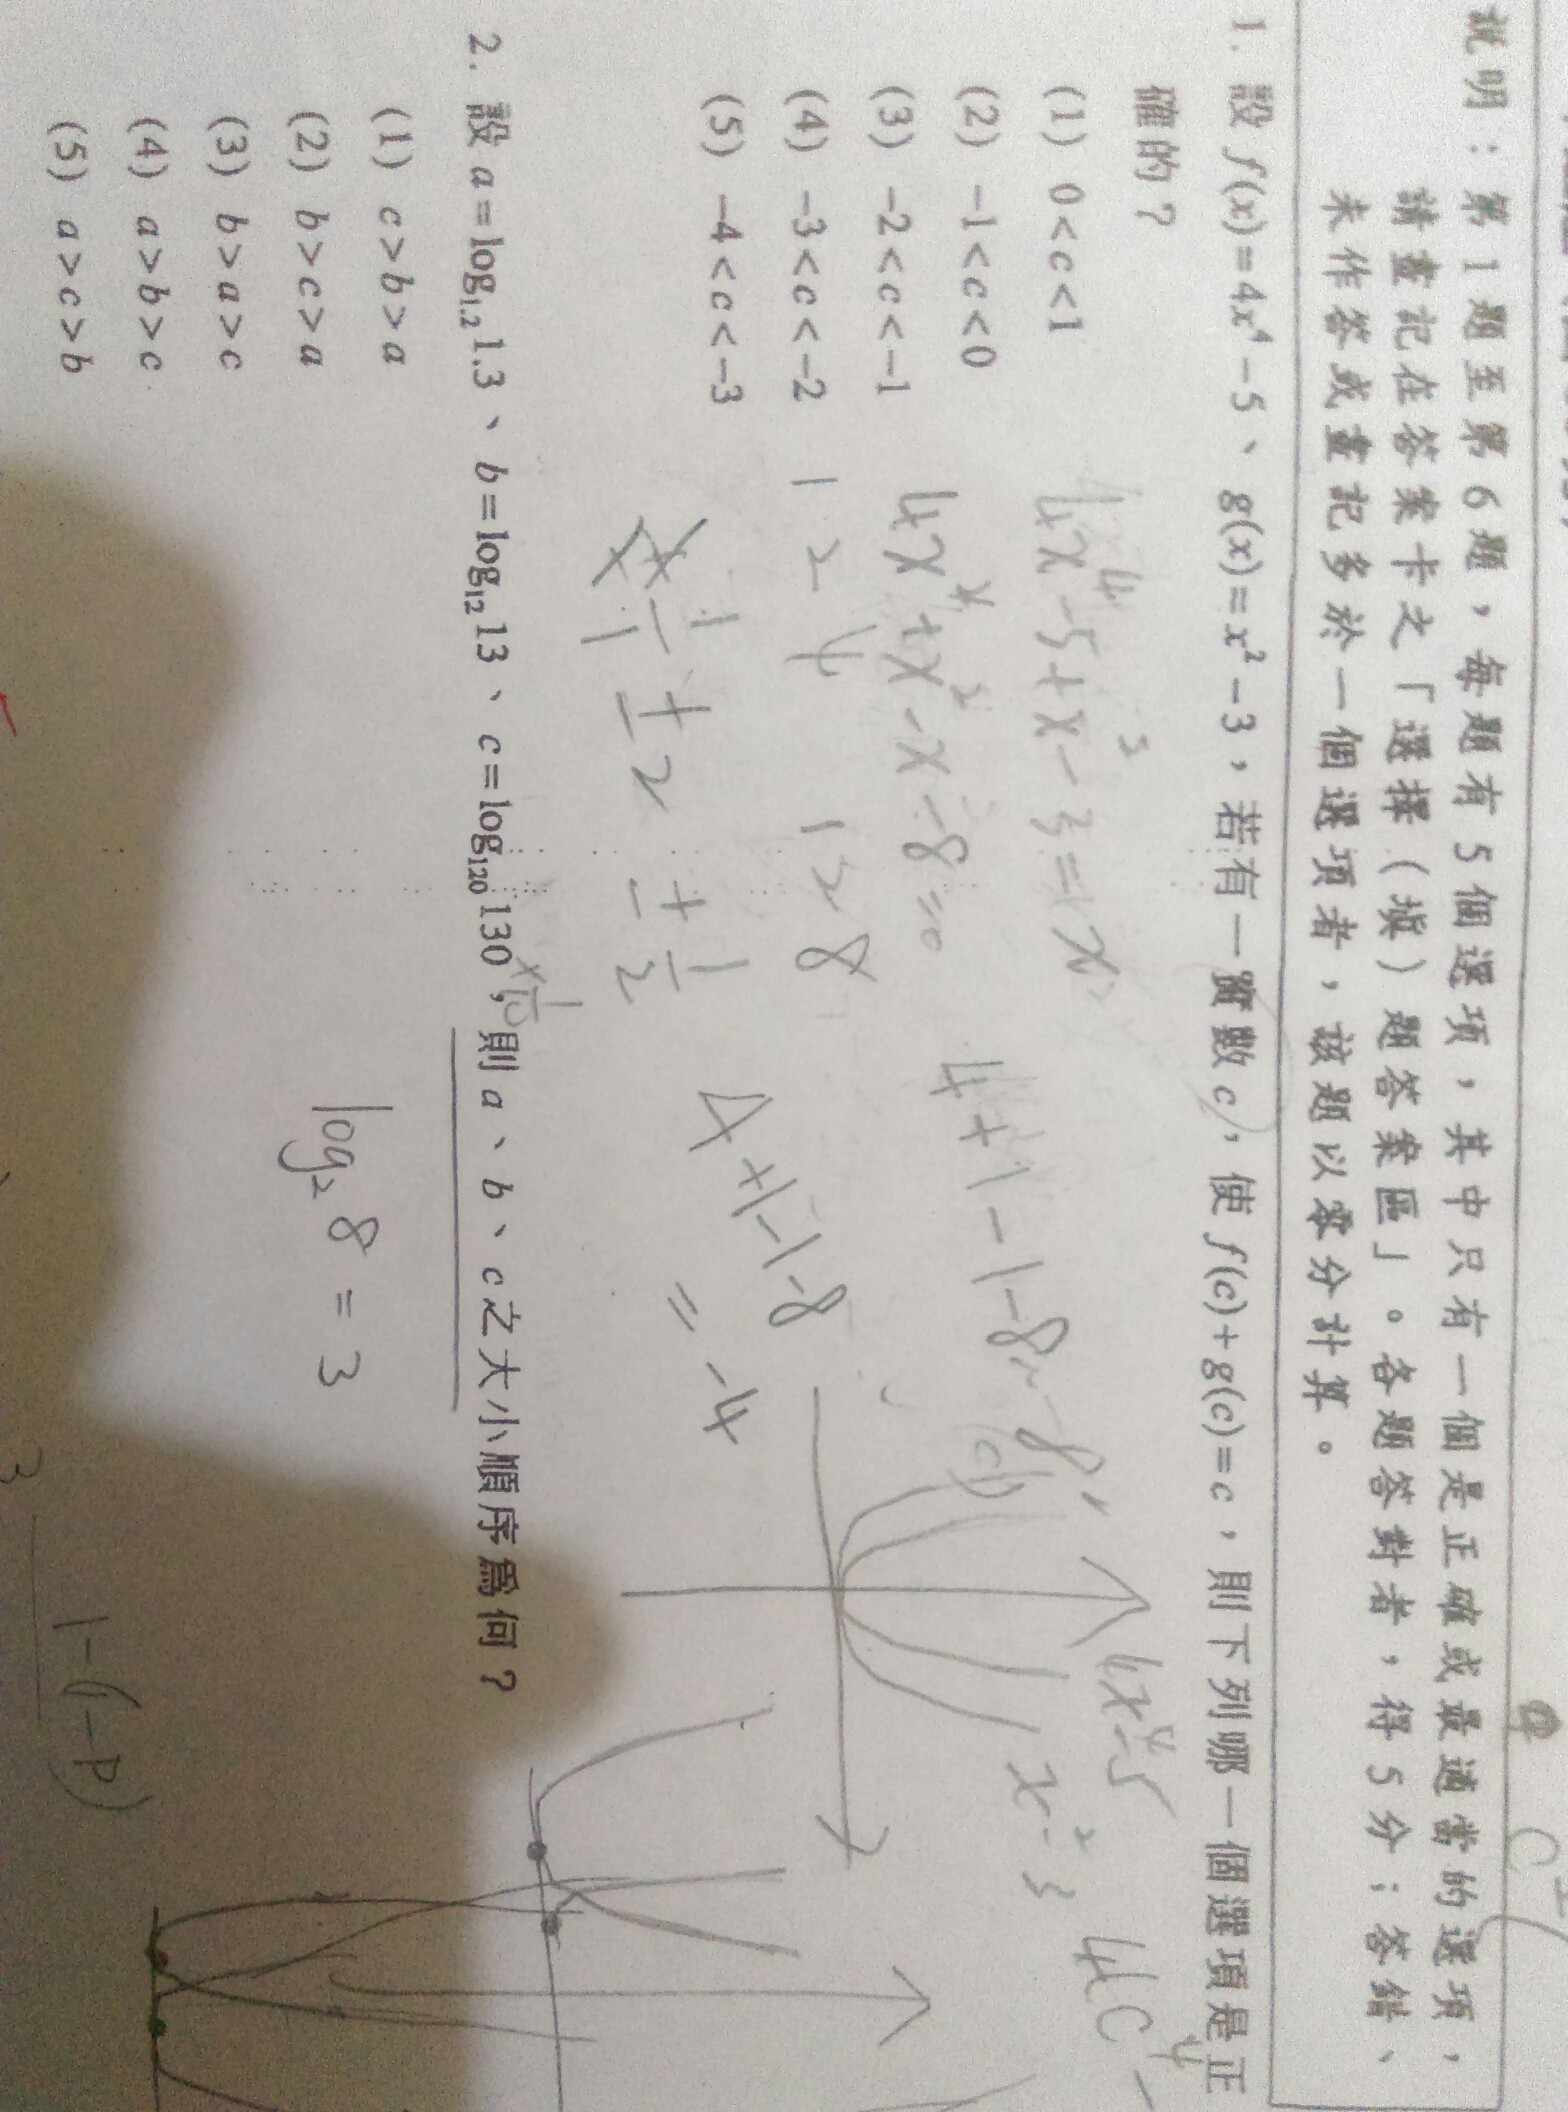 說明：第1題至第6題，每題有5個選項，其中只有一個是正確或最適當的選項，
請畫記在答案卡之「選擇（填）題答案區」。各題答對者，得5分；答錯、
未作答或畫記多於一個選項者，該題以零分計算。
1. 設 f(x)=4x⁴-5、g(x)=x²-3，若有一實數c，使 f(c)+g(c)=c，則下列哪一個選項是正
確的？
(1) 0<c<1
(2) -1<c<0
(3) -2<c<-1
(4) -3<c<-2
(5) -4<c<-3
4x⁴-5+x²-3=x
4x⁴+x²-x-8=0
1 2 4 1 2 8
±2 ±1/2
4+1-1-8
4+1-1-8
= -4
4x⁴-5
x²-3
4C⁴-
2. 設 a=log₁.₂1.3、b=log₁₂13、c=log₁₂₀130，則 a、b、c之大小順序為何？
×1/10
(1) c>b>a
(2) b>c>a
(3) b>a>c
(4) a>b>c
(5) a>c>b
log₂8=3
3
1-(1-p)